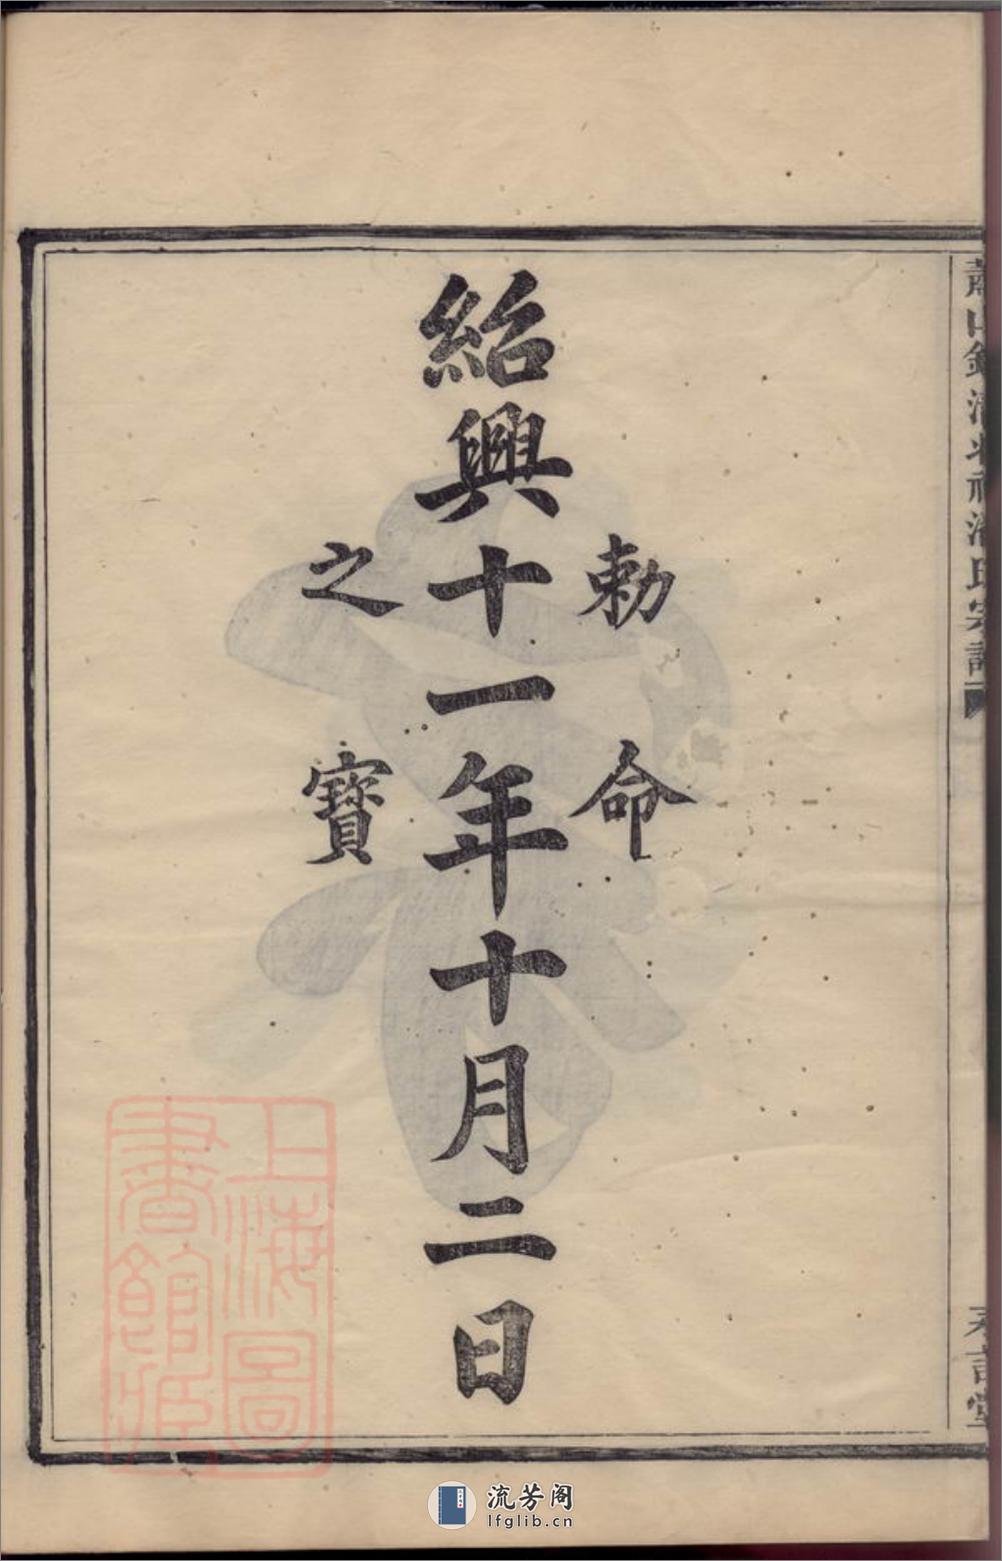 勅命
紹興十一年十月二日
之寶
氏宗譜
上海圖
書館藏
流芳阁
lfglib.cn